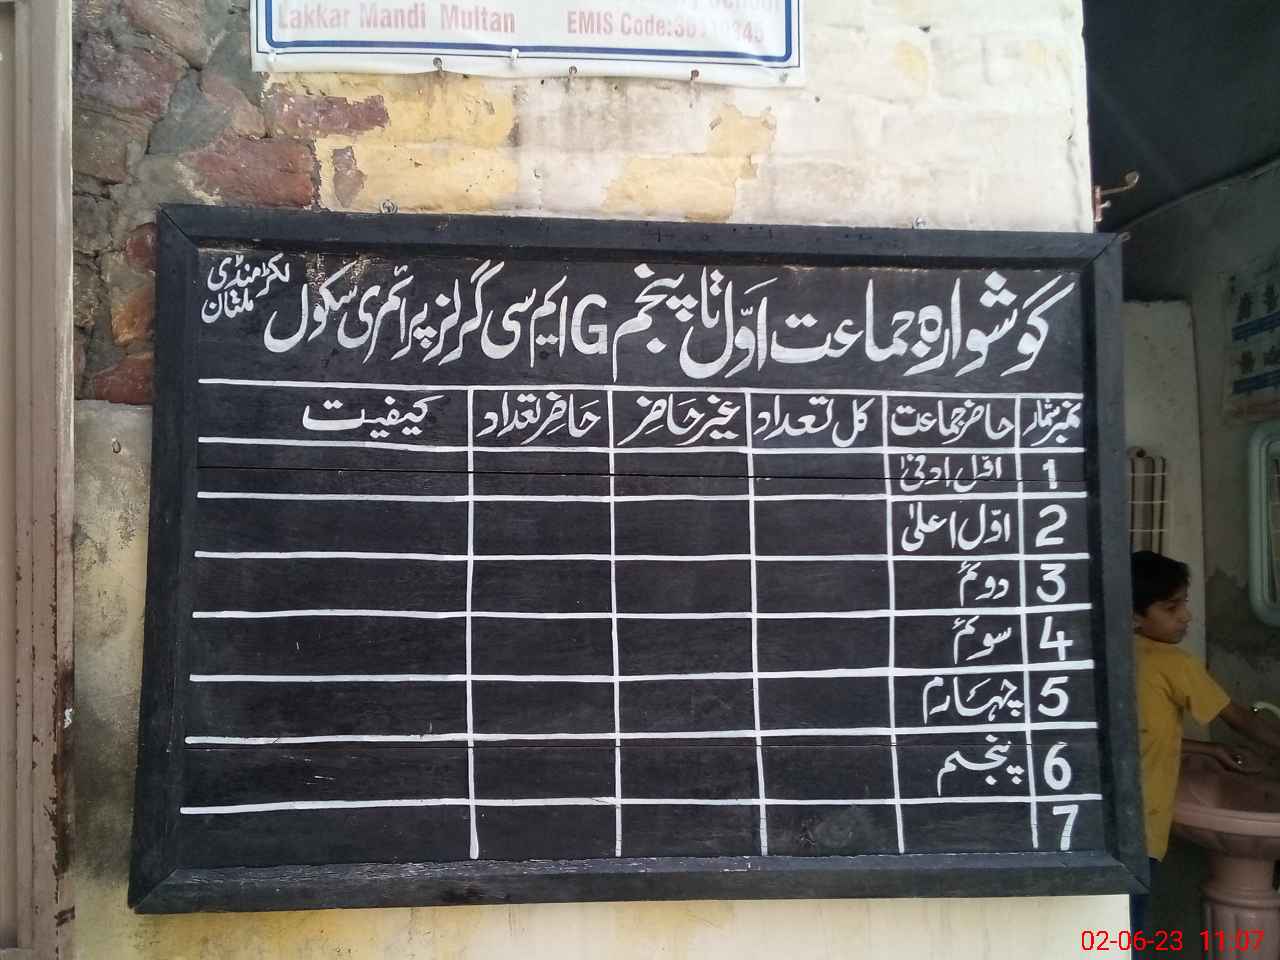 Lakkar Mandi Multan EMIS Code:
گوشوارہ جماعت اوّل تا پنجم G ایم سی گرلز پرائمری سکول لکڑ منڈی ملتان
نمبر شمار حاضر جماعت کل تعداد غیر حاضر حاضر تعداد کیفیت
1 اوّل ادنیٰ
2 اوّل اعلیٰ
3 دوئم
4 سوئم
5 چہارم
6 پنجم
7
02-06-23 11:07